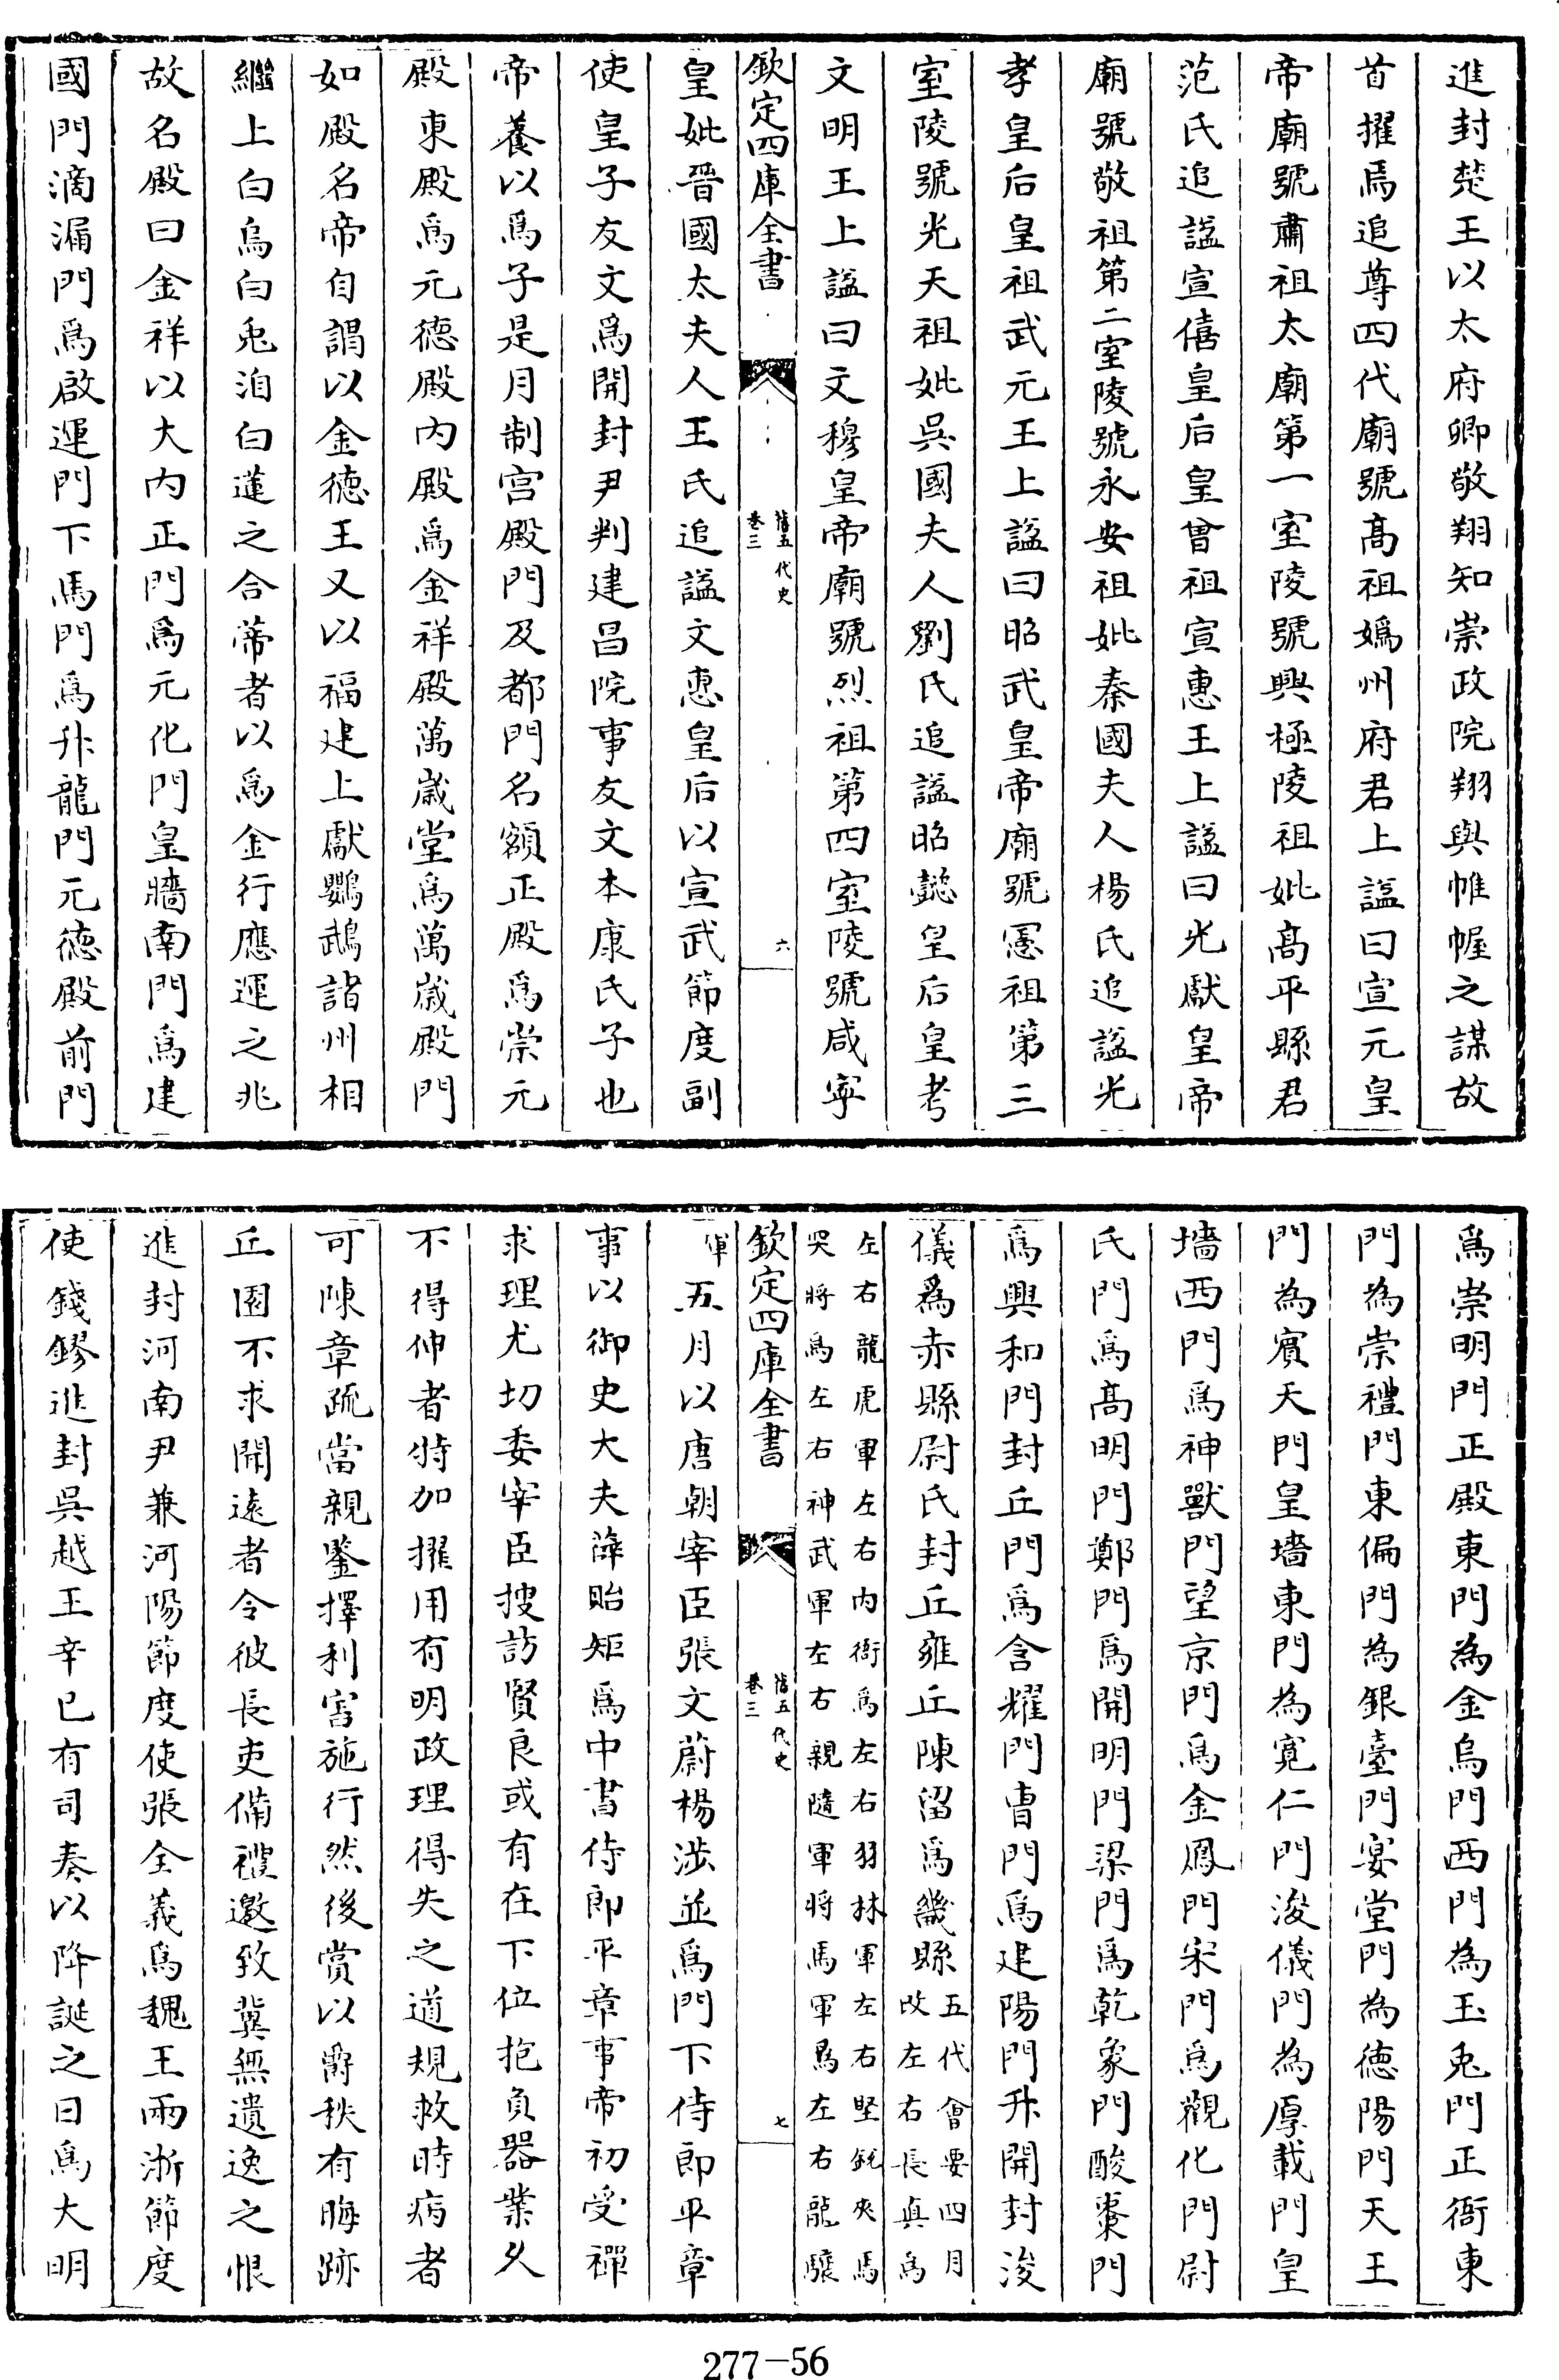 進封楚王以太府卿敬翔知崇政院翔與帷幄之謀故
首擢焉追尊四代廟號高祖嬀州府君上諡曰宣元皇
帝廟號肅祖太廟第一室陵號興極陵祖妣高平縣君
范氏追諡宣僖皇后皇曾祖宣惠王上諡曰光獻皇帝
廟號敬祖第二室陵號永安祖妣秦國夫人楊氏追諡光
孝皇后皇祖武元王上諡曰昭武皇帝廟號憲祖第三
室陵號光天祖妣吳國夫人劉氏追諡昭懿皇后皇考
文明王上諡曰文穆皇帝廟號烈祖第四室陵號咸寧
欽定四庫全書
舊五代史
卷三
六
皇妣晉國太夫人王氏追諡文惠皇后以宣武節度副
使皇子友文為開封尹判建昌院事友文本康氏子也
帝養以為子是月制宮殿門及都門名額正殿為崇元
殿東殿為元德殿內殿為金祥殿萬歲堂為萬歲殿門
如殿名帝自謂以金德王又以福建上獻鸚鵡諸州相
繼上白烏白兔洎白蓮之合蒂者以為金行應運之兆
故名殿曰金祥以大內正門為元化門皇牆南門為建
國門滴漏門為啟運門下馬門為升龍門元德殿前門
為崇明門正殿東門為金烏門西門為玉兔門正衙東
門為崇禮門東偏門為銀臺門宴堂門為德陽門天王
門為賓天門皇墻東門為寬仁門浚儀門為厚載門皇
墻西門為神獸門望京門為金鳳門宋門為觀化門尉
氏門為高明門鄭門為開明門梁門為乾象門酸棗門
為興和門封丘門為含耀門曹門為建陽門升開封浚
儀為赤縣尉氏封丘雍丘陳留為畿縣五代會要四月改左右長直為
左右龍虎軍左右內衙為左右羽林軍左右堅銳夾馬突將為左右神武軍左右親隨軍將馬軍為左右龍驤
欽定四庫全書
舊五代史
卷三
七
軍五月以唐朝宰臣張文蔚楊涉並為門下侍郎平章
事以御史大夫薛貽矩為中書侍郎平章事帝初受禪
求理尤切委宰臣搜訪賢良或有在下位抱負器業久
不得伸者特加擢用有明政理得失之道規救時病者
可陳章疏當親鑒擇利害施行然後賞以爵秩有晦跡
丘園不求聞達者令彼長吏備禮邀致冀無遺逸之恨
進封河南尹兼河陽節度使張全義為魏王兩浙節度
使錢鏐進封吳越王辛巳有司奏以降誕之日為大明
277-56